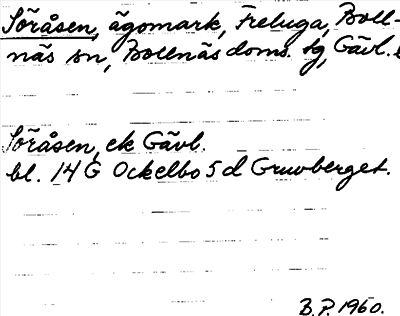 Söråsen, ägomark, Freluga, Boll-
näs sn, Bollnäs doms. tg, Gävl.
Söråsen, ek Gävl.
bl. 14 G Ockelbo 5 d Gruvberget.
B.P. 1960.